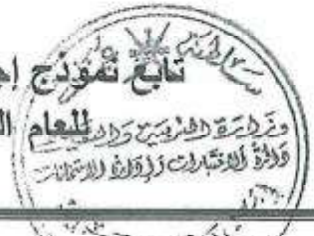 تابع نموذج إ
للعام ال
سلطنة
وزارة التربية وال
دائرة الاختبارات وإدارة الامتحانات